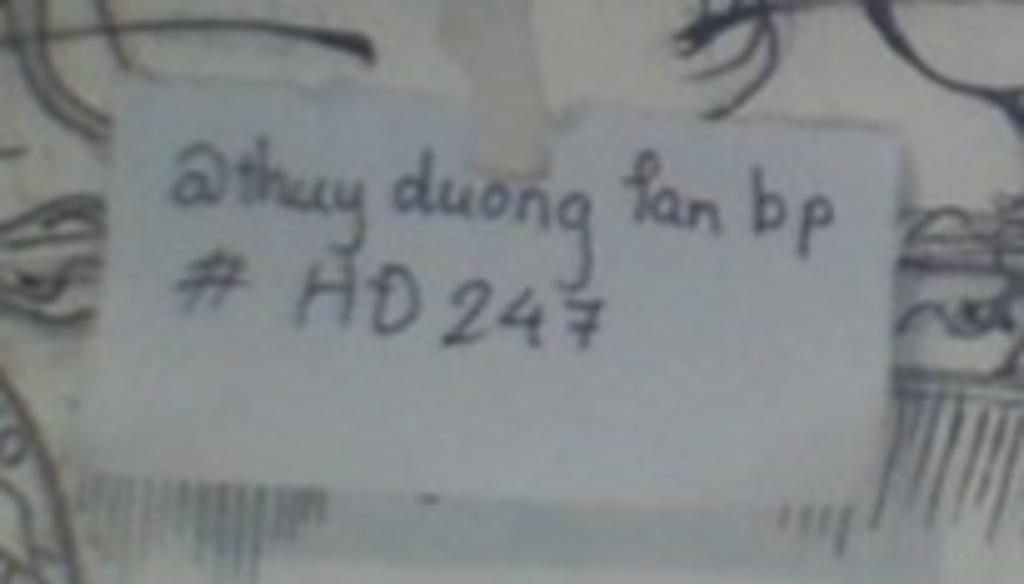 @thuy duong fan bp
# HD 247